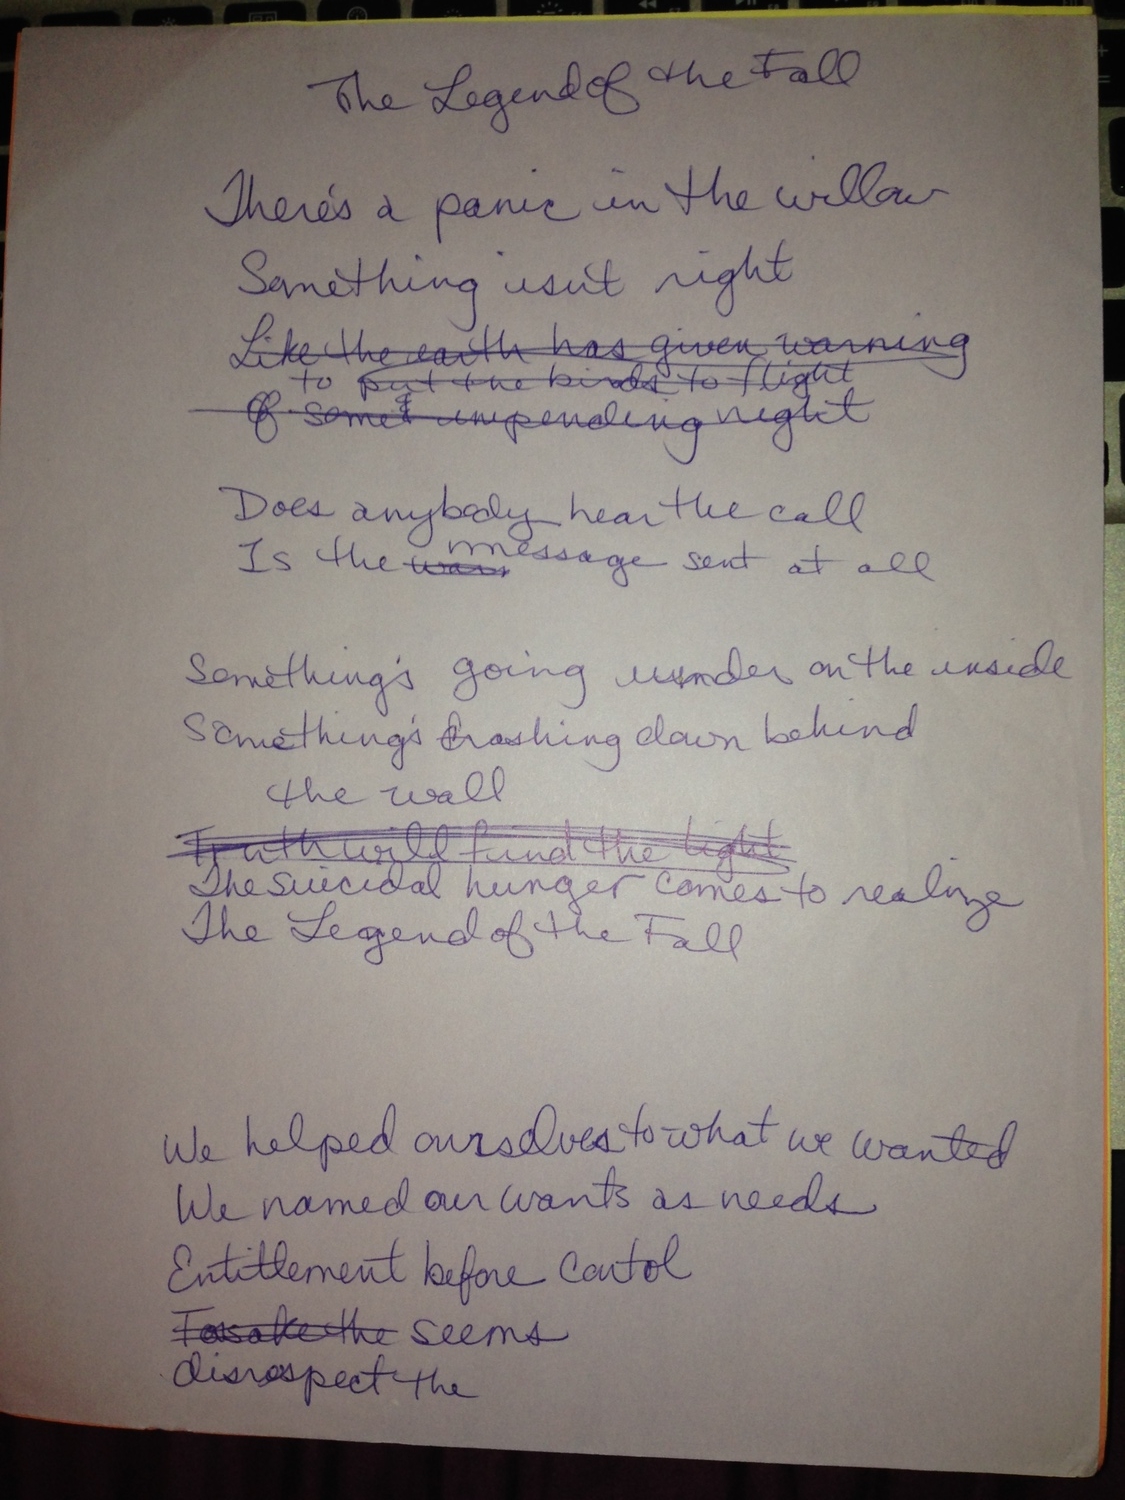 The Legend of the Fall
There's a panic in the willow
Something isn't right
Like the earth has given warning
to put the birds to flight
Of some impending night
Does anybody hear the call
Is the message sent at all
Something's going under on the inside
Something's crashing down behind
the wall
Truth will find the light
The suicidal hunger comes to realize
The Legend of the Fall
We helped ourselves to what we wanted
We named our wants as needs
Entitlement before contol
the seems
disrespect the